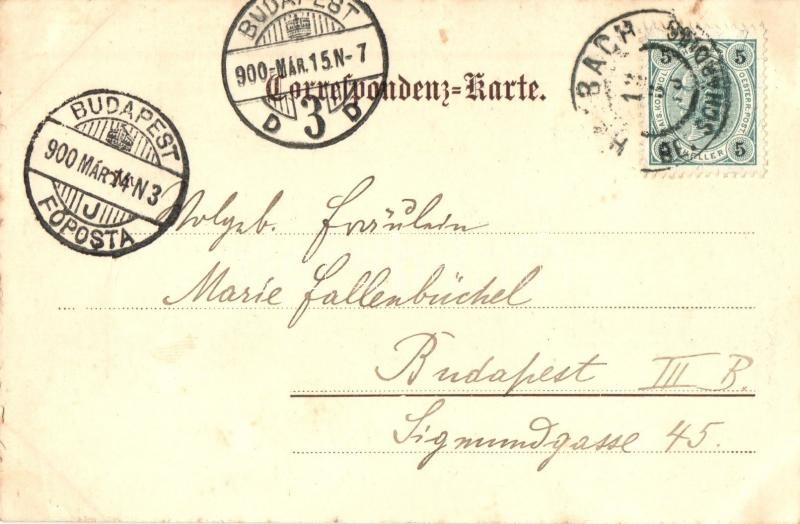 BUDAPEST
900-MÁR.15.N-7
D 3 D
BUDAPEST
900 MÁR 14 N 3
J
FŐPOSTA
Correspondenz-Karte.
BACH
5 5
5 HELLER 5
Wolgeb. Fräulein
Marie Fallenbüchel
Budapest III B.
Sigmundgasse 45.